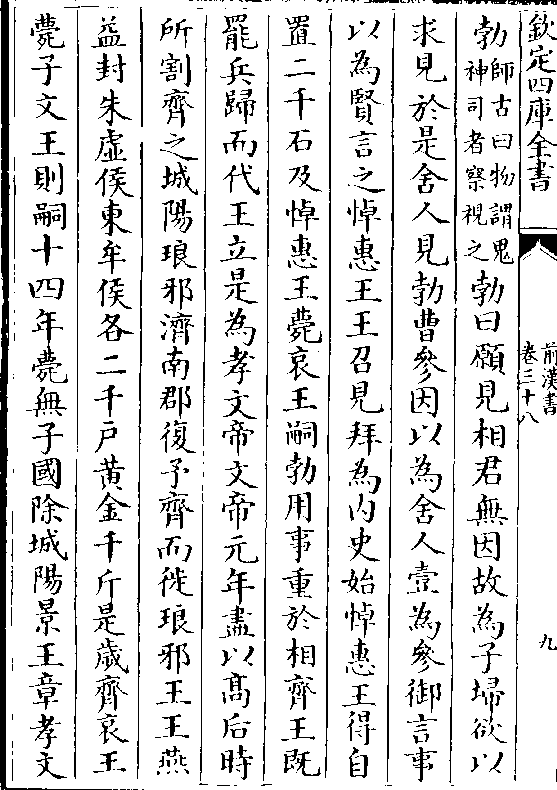 欽定四庫全書
前漢書
卷三十八
九
勃師古曰物謂鬼神司者察視之勃曰願見相君無因故為子埽欲以
求見於是舍人見勃曹參因以為舍人壹為參御言事
以為賢言之悼惠王王召見拜為内史始悼惠王得自
置二千石及悼惠王薨哀王嗣勃用事重於相齊王既
罷兵歸而代王立是為孝文帝文帝元年盡以髙后時
所割齊之城陽琅邪濟南郡復予齊而徙琅邪王王燕
益封朱虛侯東牟侯各二千戶黄金千斤是歲齊哀王
薨子文王則嗣十四年薨無子國除城陽景王章孝文